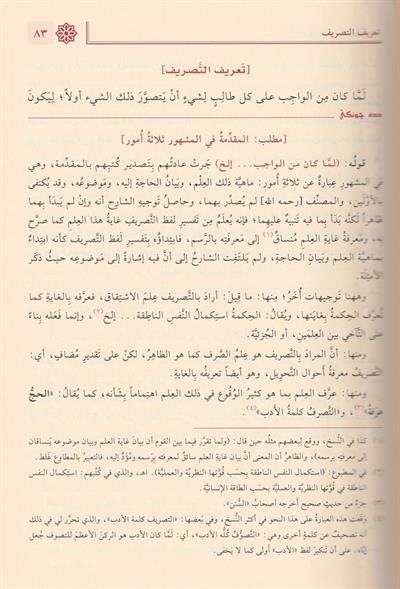 تعريف التصريف ٨٣
[تَعريف التَّصريف]
لَمَّا كان مِن الواجِب على كل طالِبٍ لِشيءٍ أنْ يَتصوَّرَ ذلك الشيء أولاً؛ لِيَكونَ
[مطلب: المقدِّمة في المشهور ثلاثةُ أمور]
قولُه: (لمَّا كان من الواجب... إلخ) جَرتْ عادتُهم بِتَصدير كُتبِهم بالمقدّمة، وهي
في المشهور عِبارةٌ عن ثلاثةِ أُمور: ماهيَّة ذلك العِلْمِ، وبَيانُ الحاجة إليه، ومَوضوعُه، وقد يُكتفى
بالأوَّلَينِ، والمصنِّف [رحمه الله] لم يُصدِّر بهما، وحاصِلُ توجيهِ الشارح أنه وإنْ لم يَبدأ بهما
ظاهراً لكنَّه بَدأ بِما فيه تَنبيهٌ عليهما؛ فإنه يُعلَمُ مِن تَفسيرِ لفظ التَّصريف غايةُ هذا العِلمِ كما صرَّح
به، ومَعرفةُ غايةِ العِلمِ مُنساقٌ(١) إلى مَعرفتِه بالرَّسم، فابتِداؤُه بِتَفسيرِ لفظ التَّصريف كأنه ابتِداءٌ
بِماهيَّةِ العِلمِ وبَيانِ الحاجةِ، ولم يَلتفِت الشارحُ إلى أنَّ فيه إشارةً إلى مَوضوعِه حيثُ ذكَر
الأمثِلةَ.
وههنا توجيهاتٌ أُخَرُ؛ مِنها: ما قِيلَ: أرادَ بالتَّصريف عِلمَ الاشتِقاق، فعرَّفه بِالغاية كما
تُعرَّف الحِكمةُ بِغايَتِها، ويُقالُ: الحِكمةُ استِكمالُ النَّفس الناطِقة... إلخ(٢)، وإنما فَعلَه بِناءً
على التَّآخي بين العِلمَينِ، أو الجُزئيَّة.
ومنها: أنَّ المرادَ بِالتَّصريف هو عِلمُ الصَّرف كما هو الظاهِرُ، لكنْ على تَقديرِ مُضافٍ، أي:
التَّصريفُ مَعرِفةُ أحوالِ التَّحويل، وهو أيضاً تَعريفٌ بِالغايةِ.
ومنها: عرَّف العِلمَ بِما هو كَثيرُ الوُقوعِ في ذلك العِلمِ اهتِماماً بِشأنِه، كما يُقالُ: «الحجُّ
عرفةُ»(٣)، و«التَّصرفُ كلمةُ الأدب»(٤).
(١) كذا في النُّسخ، ووقع لِبعضهم مثلُه حين قال: (ولما تقرَّر فيما بين القوم أن بيان غاية العلم وبيان موضوعه يَنساقان
إلى معرفتِه برسمه)، والظاهر أن المعنى أنَّ بيانَ غاية العلمِ سائقٌ لمعرفتِه بِرَسمه ومُؤدٍّ إليه، فالتعبيرُ بالمطاوع غلط.
(٢) في المطبوع: (استكمال النفس الناطقة بِحسَب قُوَّتها النظريَّة والعمليَّة). اهـ، والذي في كُتُبِهم: استكمال النفس
الناطقة في قُوَّتِها النظريَّة والعمليَّة بحسب الطاقة الإنسانيَّة.
(٣) جزءٌ من حديث صحيح أخرجه أصحابُ «السُّنن».
(٤) وقَعت هذه العبارةُ على هذا النحو في أكثر النُّسخ، وفي بَعضها: «التصريف كلمة الأدب»، والذي تحرَّر لي في ذلك
أنه تصحيفٌ عن كلمةٍ أخرى وهي: «التَّصوُّف كُلُّه الأدب»، أي: لمَّا كان الأدب هو الركنَ الأعظمَ للتصوف جُعل
إيَّاه. على أن تَنكيرَ لفظ «الأدب» أولى كما لا يَخفى.